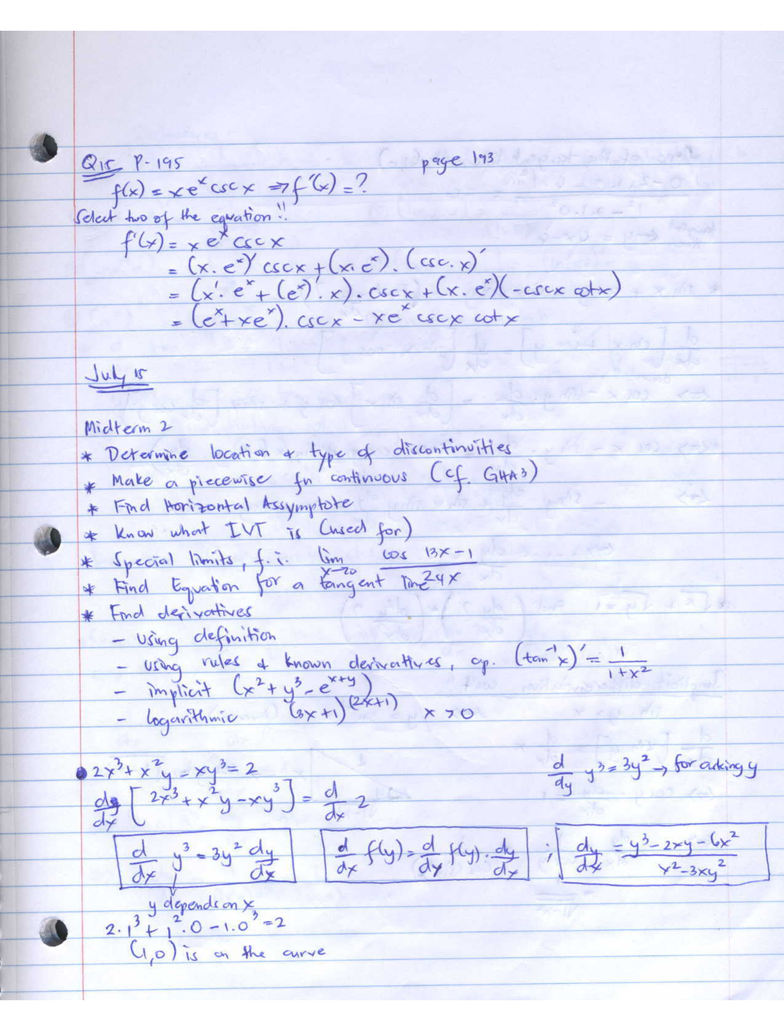 Q15 P-195 page 193
f(x) = x eˣ csc x ⇒ f'(x) = ?
Select two of the equation!!
f'(x) = x eˣ csc x
= (x · eˣ)' csc x + (x · eˣ) · (csc · x)'
= (x' · eˣ + (eˣ)' · x) · csc x + (x · eˣ)(-csc x cot x)
= (eˣ + xeˣ) · csc x - xeˣ csc x cot x
July 15
Midterm 2
* Determine location & type of discontinuities
* Make a piecewise fn continuous (cf. GHA3)
* Find Horizontal Assymptote
* Know what IVT is (used for)
* Special limits, f.i. lim x→0 (cos 13x - 1)/(24x)
* Find Equation for a tangent line
* Find derivatives
- using definition
- using rules & known derivatives, cp. (tan⁻¹x)' = 1/(1+x²)
- implicit (x² + y³ - eˣ⁺ʸ)
- logarithmic (3x+1)^(2x+1) x > 0
• 2x³ + x²y - xy³ = 2 d/dy y³ = 3y² → for asking y
dy/dx [2x³ + x²y - xy³] = d/dx 2
d/dx y³ = 3y² dy/dx d/dx f(y) = d/dy f(y) · dy/dx ; dy/dx = (y³ - 2xy - 6x²)/(x² - 3xy²)
y depends on x
2·1³ + 1²·0 - 1·0³ = 2
(1,0) is on the curve